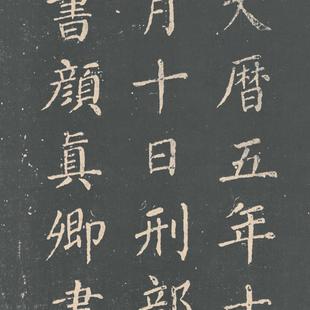 大曆五年十
月十日刑部
書顏眞卿書